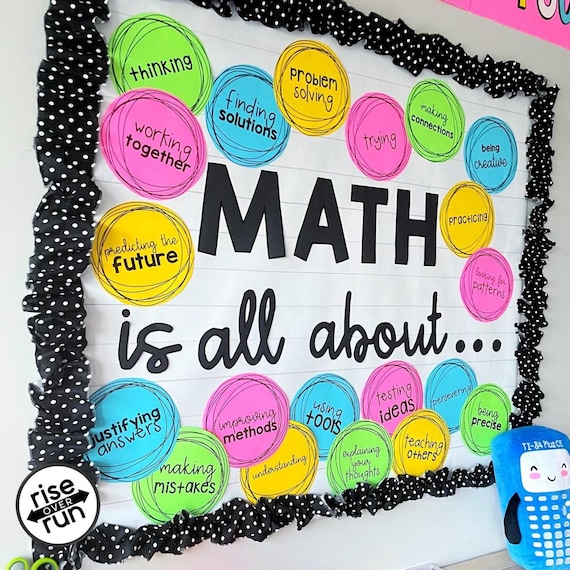 thinking
finding
solutions
problem
solving
trying
making
connections
being
creative
working
together
practicing
predicting the
future
looking for
patterns
MATH
is all about...
justifying
answers
making
mistakes
improving
methods
understanding
using
tools
explaining
your
thoughts
testing
ideas
teaching
others
persevering
being
precise
rise
OVER
run
TI-84 Plus CE